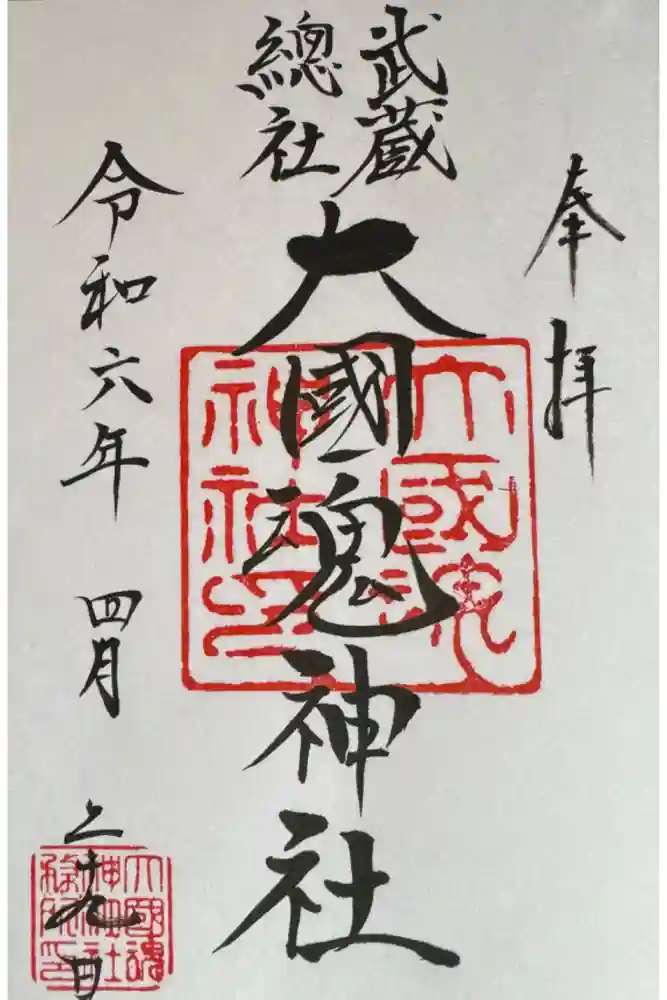 奉拝
武蔵
總社
大國魂神社
大國魂神社印
令和六年 四月 二十九日
大國魂
神社